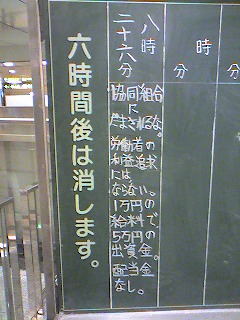 六時間後は消します。
八時
二十六分
協同組合
に
だまされるな。
労働者の
利益追求
には
ならない。
1万円の
給料で、
5万円の
出資金。
配当金
なし。
時
分
分